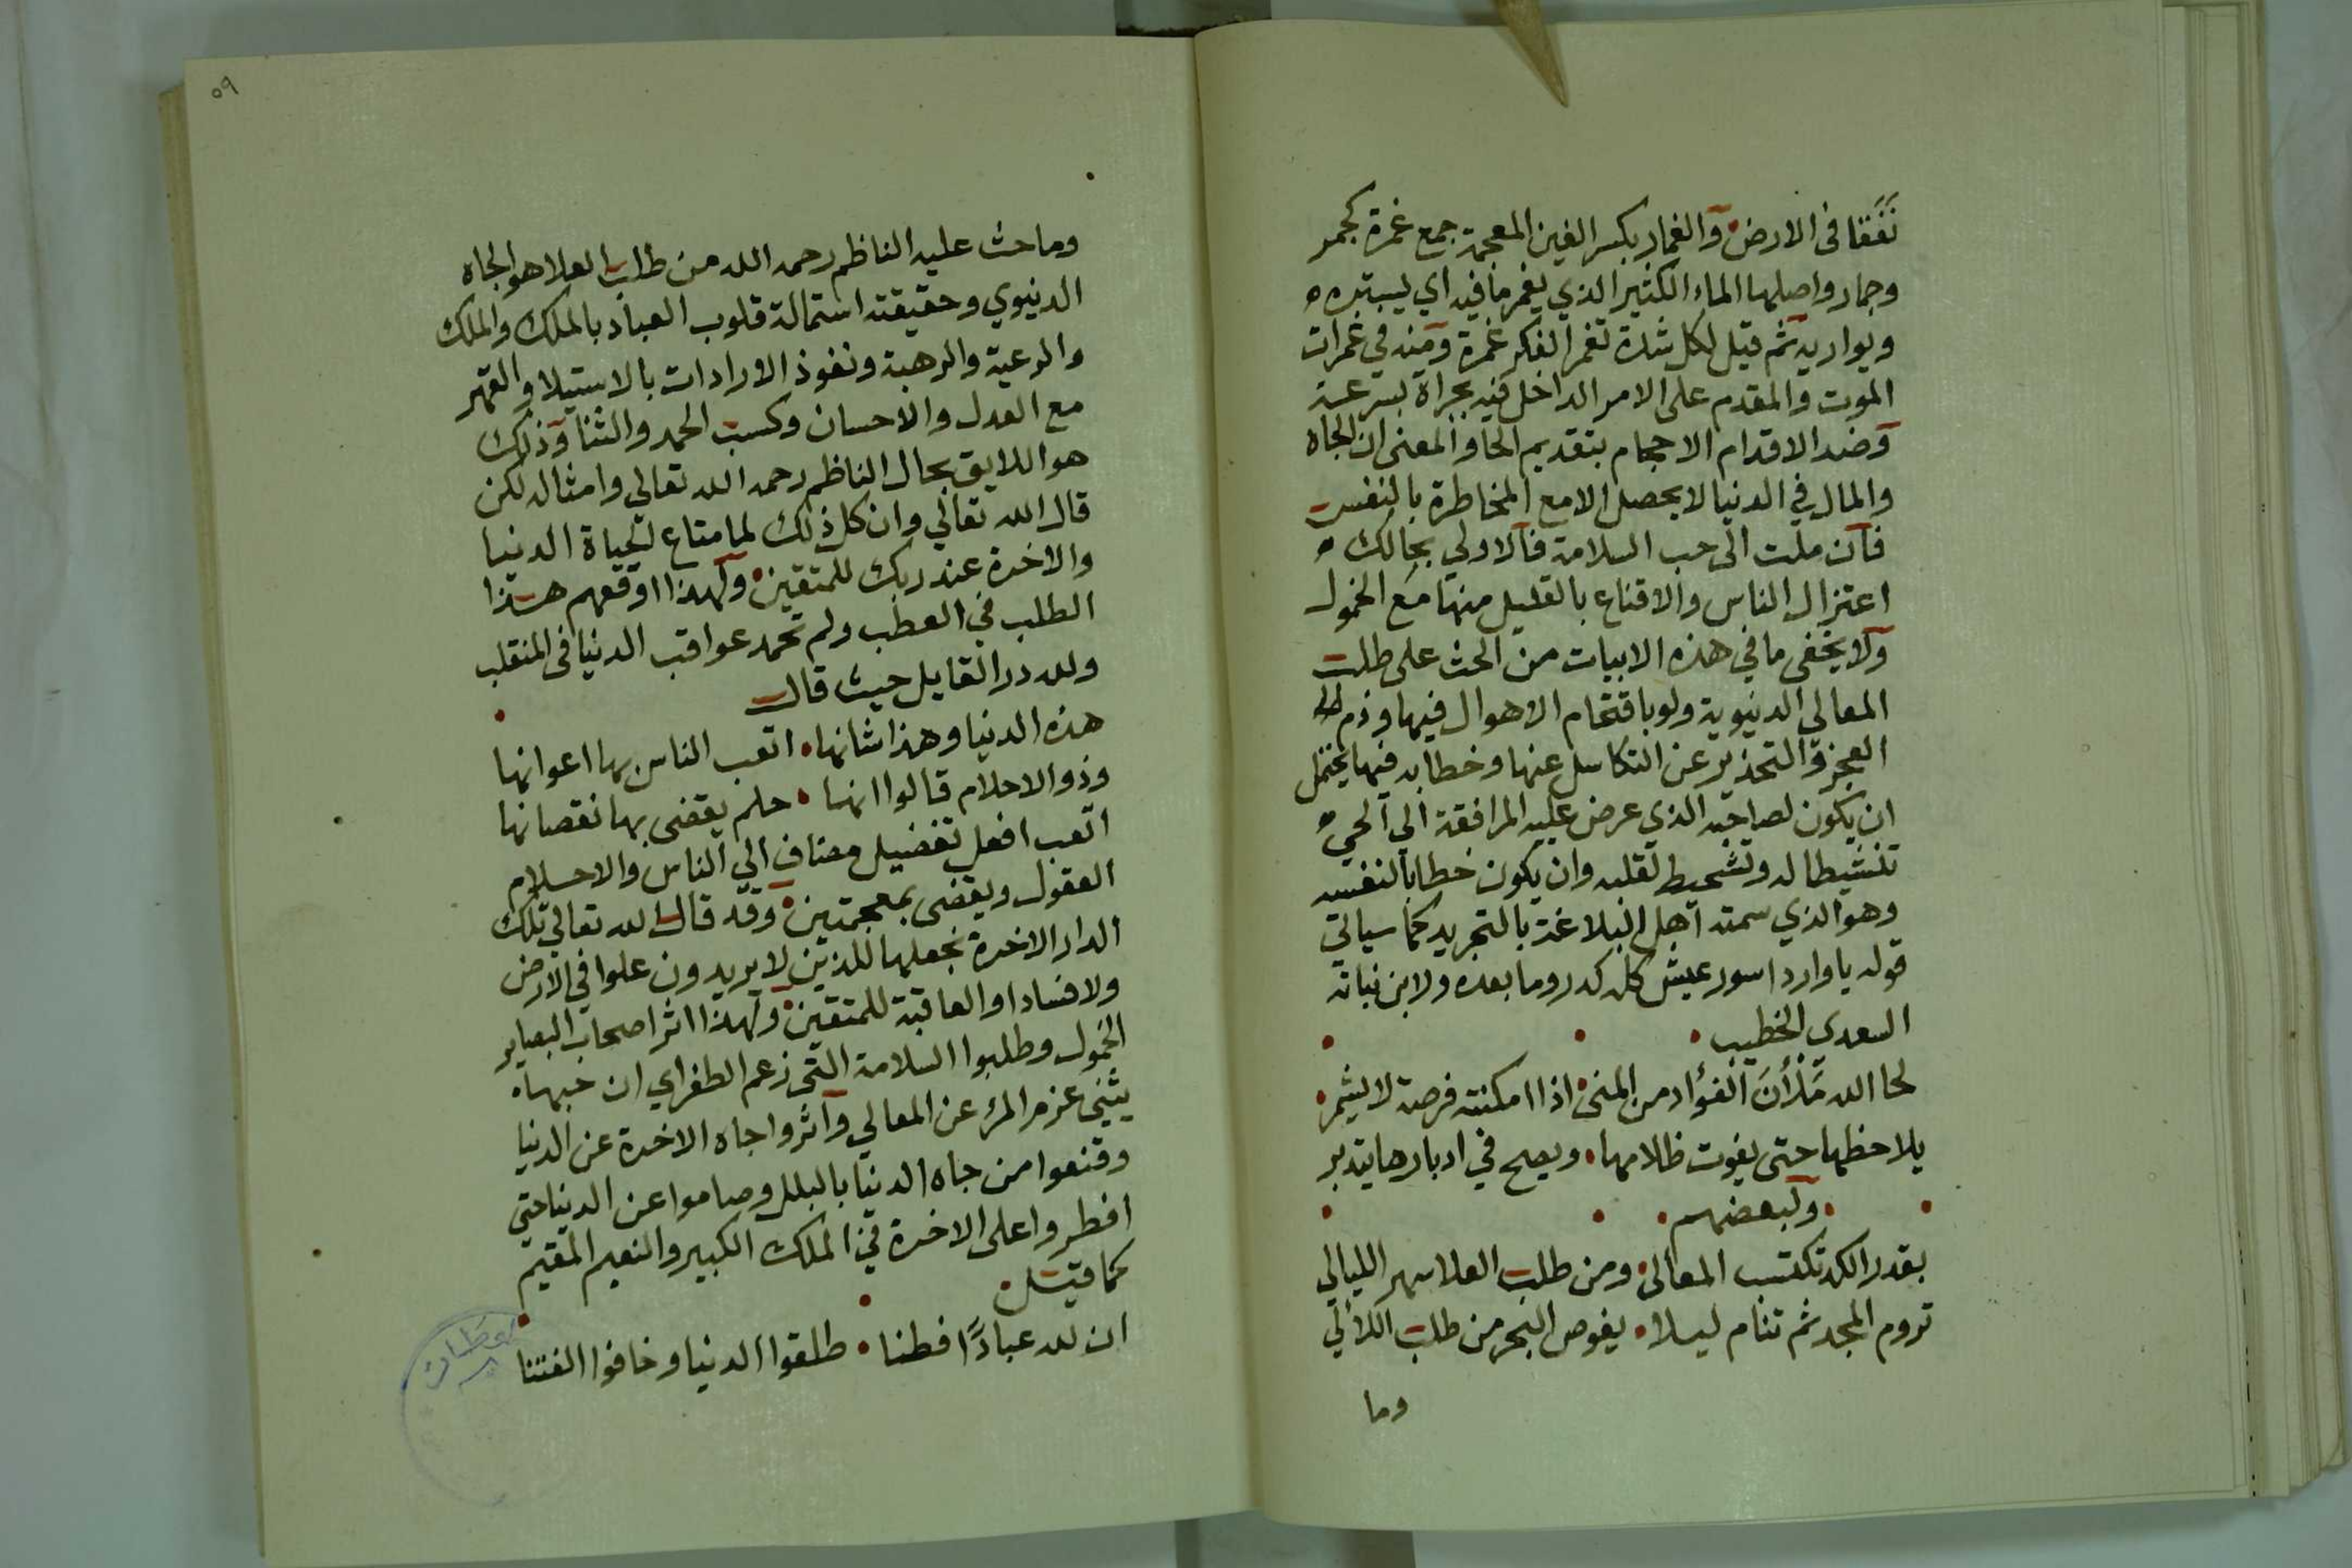 نَفَقًا فى الارض والغمار بكسر الغين المعجمة جمع غمرة كجمر
وجمار واصلها الماء الكثير الذي يغمر ما فيه اي يستره
ويواريه ثم قيل لكل شدة تغمر الفكر غمرة ومنه في غمرات
الموت والمقدم على الامر الداخل فيه بجراة بسرعة
وضد الاقدام الاحجام بتقديم الحا والمعنى ان الجاه
والمال في الدنيا لا يحصل الا مع المخاطرة بالنفس
فان ملت الى حب السلامة فالاولي بحالك
اعتزال الناس والاقناع بالقليل منها مع الخمول
ولا يخفى ما في هذه الابيات من الحث على طلب
المعالي الدنيوية ولو باقتحام الاهوال فيها وذم
العجز والتحذير عن التكاسل عنها وخطابه فيها يحتمل
ان يكون لصاحبه الذي عرض عليه المرافقة الي الحي
تنشيطا له وتشحيط لقلبه وان يكون خطابا لنفسه
وهو الذي سمته اهل البلاغة بالتجريد كما سياتي
قوله يا واردا سور عيش كله كدر وما بعده ولابن نباته
السعدي الخطيب
لحا الله مَلْأَنَ الفؤاد من المنى اذا امكنته فرصة لا يشمر
يلاحظها حتى يفوت ظلامها ويصبح في ادبارها يتدبر
ولبعضهم
بقدر الكد تكتسب المعالى ومن طلب العلا سهر الليالي
تروم المجد ثم تنام ليلا يغوص البحر من طلب اللآلي
وما
٥٩
وما حث عليه الناظم رحمه الله من طلب العلا هو الجاه
الدنيوي وحقيقته استمالة قلوب العباد بالملك والملك
والرعية والرهبة ونفوذ الارادات بالاستيلا والقهر
مع العدل والاحسان وكسب الحمد والثنا وذلك
هو اللايق بحال الناظم رحمه الله تعالي وامثاله لكن
قال الله تعالي وان كل ذلك لما متاع لحياة الدنيا
والاخرة عند ربك للمتقين ولهذا اوقعهم هذا
الطلب في العطب ولم تحمد عواقب الدنيا في المنقلب
ولله در القايل حيث قال
هذه الدنيا وهذا شانها اتعب الناس بها اعوانها
وذوو الاحلام قالوا انها حلم يقضى بها نقصانها
اتعب افعل تفضيل مضاف الي الناس والاحلام
العقول ويقضى بمعجمتين وقد قال الله تعالي تلك
الدار الاخرة نجعلها للذين لا يريدون علوا في الارض
ولا فسادا والعاقبة للمتقين ولهذا اثر اصحاب البصاير
الخمول وطلبوا السلامة التى زعم الطغراي ان حبها
يثني عزم المرء عن المعالي وآثروا جاه الاخرة عن الدنيا
وقنعوا من جاه الدنيا بالبلل وصاموا عن الدنيا حتى
افطروا على الاخرة في الملك الكبير والنعيم المقيم
كما قيل
ان لله عبادًا فطنا طلقوا الدنيا وخافوا الفتنا